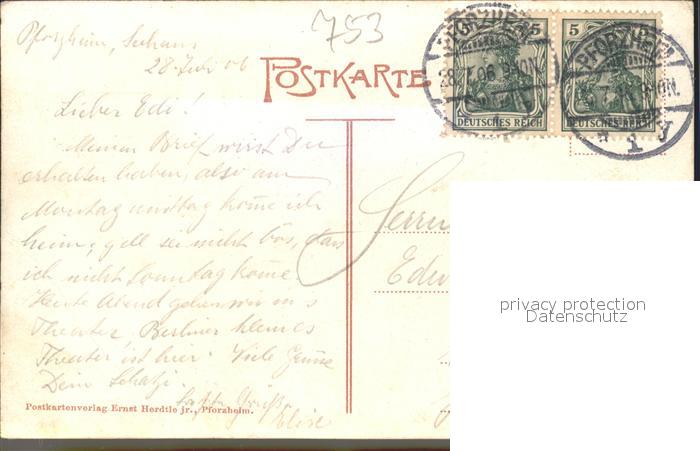 753
Pforzheim, Seehaus
28 Juli 06
POSTKARTE
PFORZHEIM
28.7.06
5
DEUTSCHES REICH
5
PFORZHEIM
DEUTSCHES REICH
1
Lieber Edi!
Meinen Brief wirst Du
erhalten haben, also am
Montag komme ich
heim, gell sei nicht bös, dass
ich nicht Sonntag komme.
Heute Abend gehen wir ins
Theater. Berliner kleines
Theater ist hier. Viele
Dein Schatzi.
Elise
Herrn
Edw
Postkartenverlag Ernst Herdtle jr., Pforzheim.
privacy protection
Datenschutz